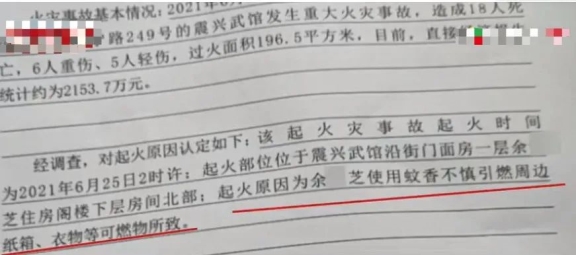 火灾事故基本情况：2021年6
路249号的震兴武馆发生重大火灾事故，造成18人死
亡，6人重伤、5人轻伤，过火面积196.5平方米，目前，直接
统计约为2153.7万元。
经调查，对起火原因认定如下：该起火灾事故起火时间
为2021年6月25日2时许；起火部位位于震兴武馆沿街门面房一层余
芝住房阁楼下层房间北部；起火原因为余 芝使用蚊香不慎引燃周边
纸箱、衣物等可燃物所致。